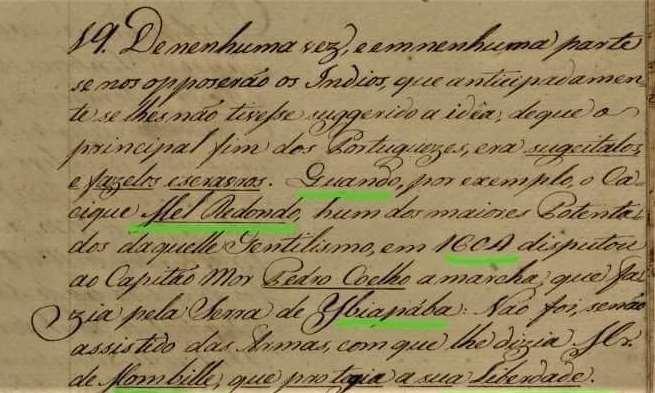 19. De nenhuma vez, e em nenhuma parte
se nos opposerão os Indios, que anticipadamen-
te se lhes não tivesse suggerido a idêa, de que o
principal fim dos Portuguezes, era sugeitalos,
e fazelos escravos. Quando, por exemplo, o Ca-
cique Mel Redondo, hum dos maiores Potenta-
dos daquelle Gentilismo, em 1604 disputou
ao Capitão Mor Pedro Coelho a marcha, que fa-
zia pela Serra de Ybiapába. Não foi, senão
assistido das Armas, com que lhe dizia Mr.
de Mombille, que protegia a sua Liberdade.